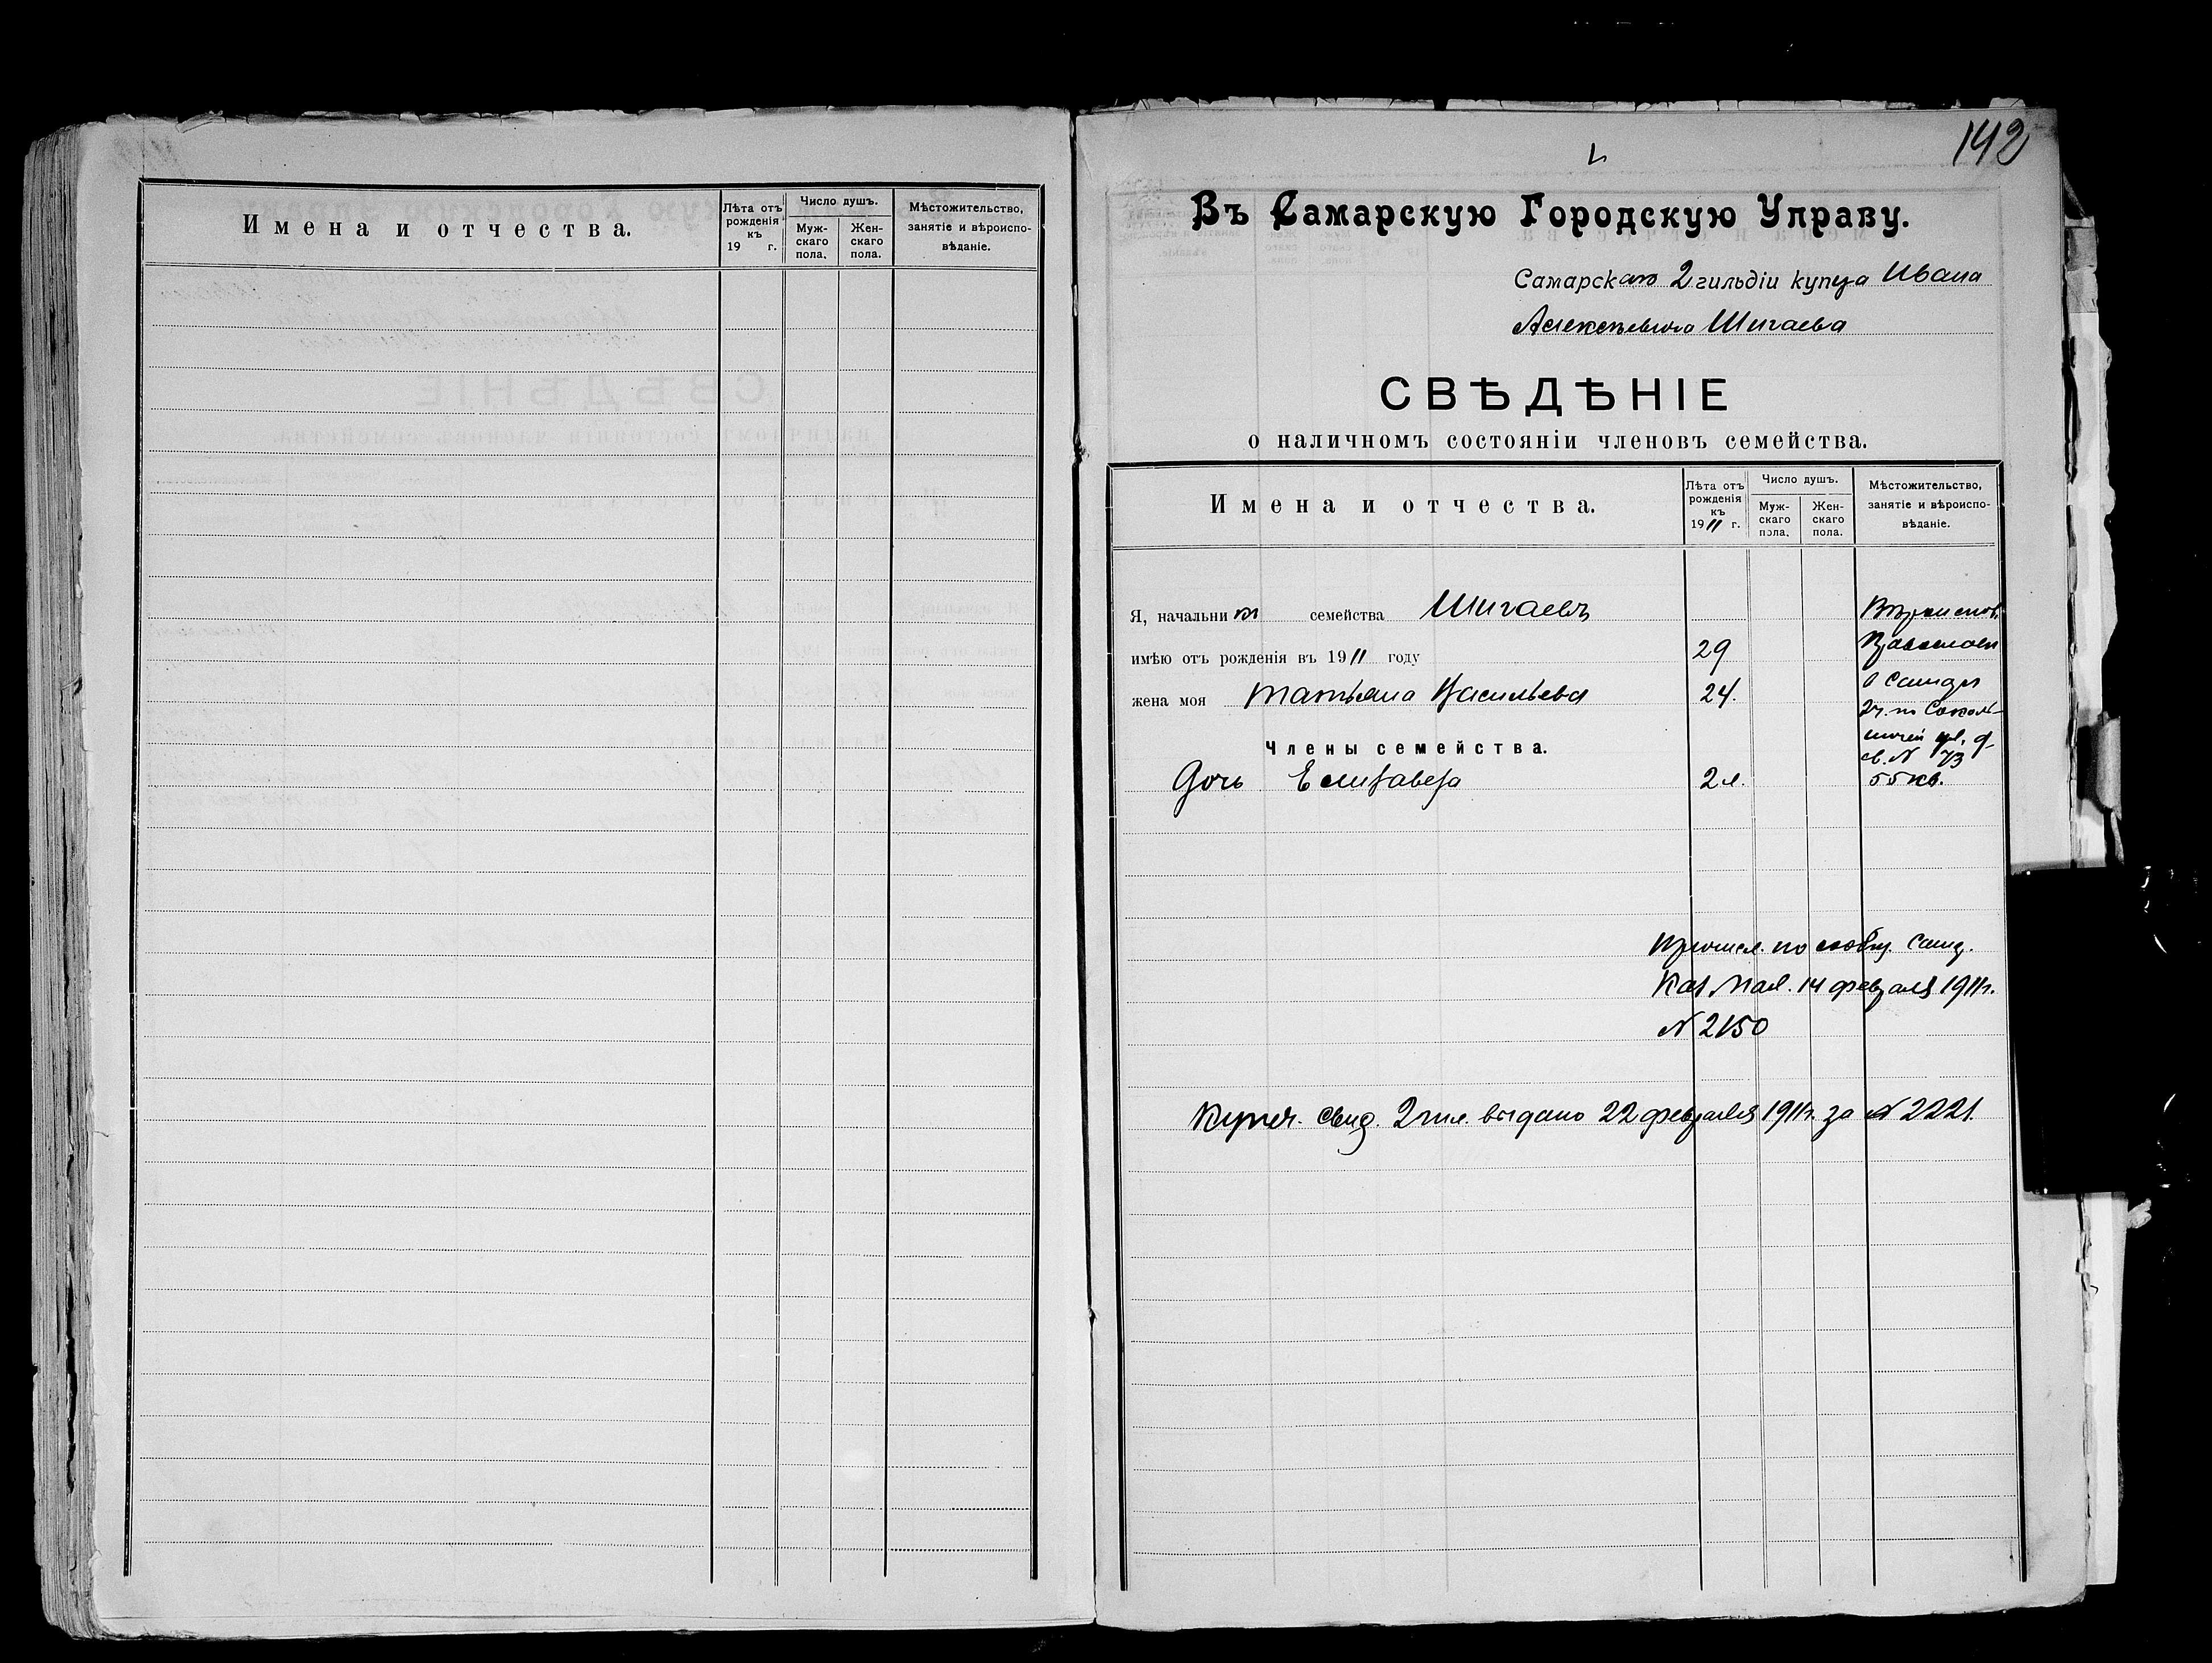 Имена и отчества.
Лѣта отъ рожденія къ 19 г.
Число душъ.
Мужскаго пола.
Женскаго пола.
Мѣстожительство, занятіе и вѣроисповѣданіе.
142
Въ Самарскую Городскую Управу.
Самарскаго 2 гильдіи купца Ивана
Алексѣевича Шигаева
СВѢДѢНІЕ
о наличномъ состояніи членовъ семейства.
Имена и отчества.
Лѣта отъ рожденія къ 1911 г.
Число душъ.
Мужскаго пола.
Женскаго пола.
Мѣстожительство, занятіе и вѣроисповѣданіе.
Я, начальникъ семейства Шигаевъ
Вѣроиспов.
имѣю отъ рожденія въ 1911 году 29
Православн
жена моя Татьяна Васильева 24.
2ч. по Соколь-
ничей ул. д.
св. № 73
Члены семейства.
Дочь Елизавета 2 л.
55 кв.
Причисл. по сообщ. Самар.
Каз. Пал. 14 февраля 1911 г.
№ 2150
Купеч. свид. 2 гил. выдано 22 февраля 1911 г. за № 2221.